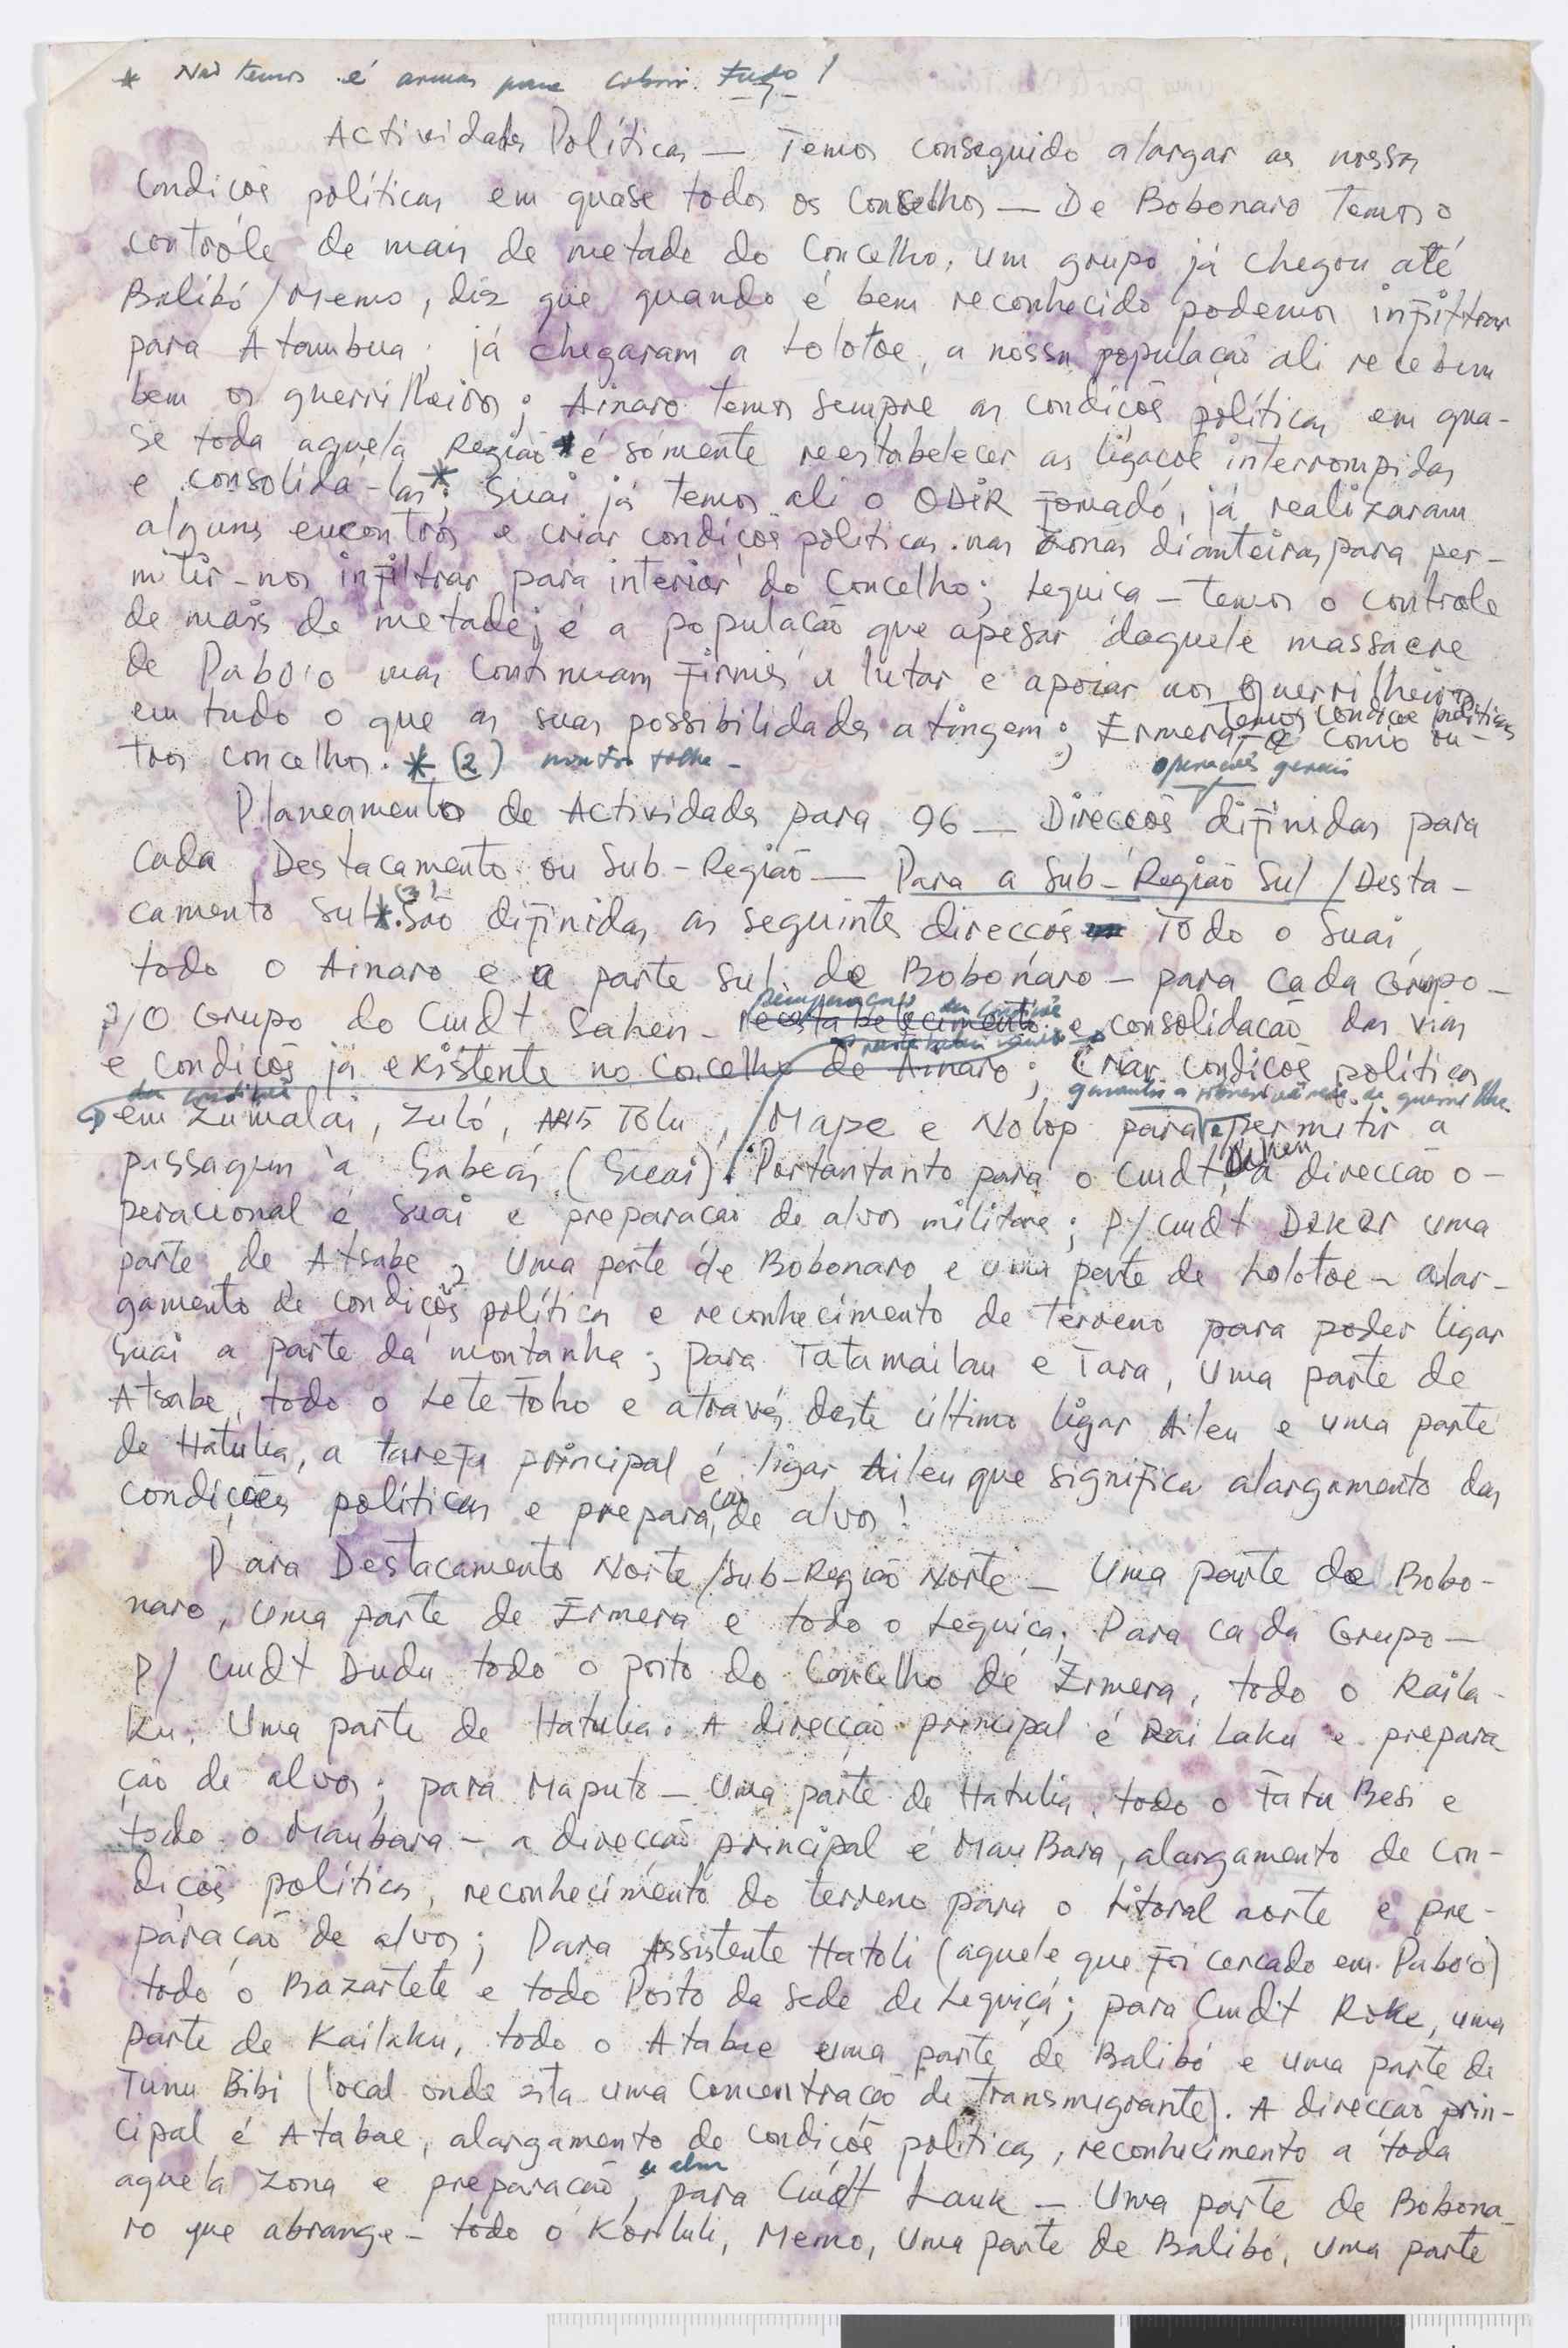 * Não temos é armas para cobrir tudo!
Actividades Políticas — Temos conseguido alargar as nossas
condições políticas em quase todos os Conselhos — De Bobonaro temos o
contrôle de mais de metade do Concelho, um grupo já chegou até
Balibó/Memo, diz que quando é bem reconhecido podemos infiltrar
para Atambua; já chegaram a Lolotoe, a nossa população ali recebem
bem os guerrilheiros; Ainaro temos sempre as condições políticas em qua-
se toda aquela Região * é sómente reestabelecer as ligações interrompidas
e consolidá-las *; Suai já temos ali o ODIR formado, já realizaram
alguns encontros e criar condições políticas nas zonas dianteiras para per-
mitir-nos infiltrar para interior do Concelho; Lequiça — temos o controle
de mais de metade; é a população que apesar daquele massacre
de Pabo'o mas continuam firmes a lutar e apoiar nos guerrilheiros
em tudo o que as suas possibilidades atingem; Ermera — temos condições políticas como ou-
tros concelhos. * (2) noutro folha —
operações gerais
Planeamento de Actividades para 96 — Direcções difinidas para
cada Destacamento ou Sub-Região — Para a Sub-Região Sul/Desta-
camento Sul * (3). São difinidas as seguintes direcções Todo o Suai,
todo o Ainaro e a parte sul de Bobonaro — para cada Grupo —
p/O Grupo do Cmdt Sahen — reestabelecimento e consolidação das vias
e condições já existente no Concelho de Ainaro; Criar condições políticas
garantir a sobrevivência de guerrilha
em Zumalai, Zuló, Tolu, Mape e Nolop para permitir a
passagem à Gabeás (Suai). Portantanto para o Cmdt Sahen, a direcção o-
peracional é Suai e preparação de alvos militares; P/Cmdt Deker uma
parte de Atsabe, Uma parte de Bobonaro e uma parte de Lolotoe — alar-
gamento de condições política e reconhecimento de terreno para poder ligar
Suai a parte da montanha; para Tatamailau e Tara, Uma parte de
Atsabe, todo o Letefoho e através deste último ligar Aileu e uma parte
de Hatulia, a tarefa principal é ligar Aileu que significa alargamento das
condições políticas e preparação de alvos!
Para Destacamento Norte/Sub-Região Norte — Uma parte de Bobo-
naro, uma parte de Ermera e todo o Lequiça; Para cada Grupo —
P/ Cmdt Dudu todo o posto do Concelho de Ermera, todo o Raila-
ku, Uma parte de Hatulia. A direcção principal é Rai Laku e prepara
ção de alvos; para Maputo — Uma parte de Hatulia, todo o Fatu Besi e
todo o Maubara — a direcção principal é MauBara, alargamento de con-
dições políticas, reconhecimento do terreno para o litoral norte e pre-
paração de alvos; Para Assistente Hatoli (aquele que foi cercado em Pabo'o)
todo o Bazartete e todo Posto da sede de Lequiçá; para Cmdt Roke, uma
parte de Kailaku, todo o Atabae uma parte de Balibó e uma parte de
Tunu Bibi (local onde esta uma Concentração de transmigrante). A direcção prin-
cipal é Atabae, alargamento de condições políticas, reconhecimento a toda
aquela zona e preparação, para Cmdt Lauk — Uma parte de Bobona-
ro que abrange — todo o Korluli, Memo, Uma parte de Balibó, uma parte